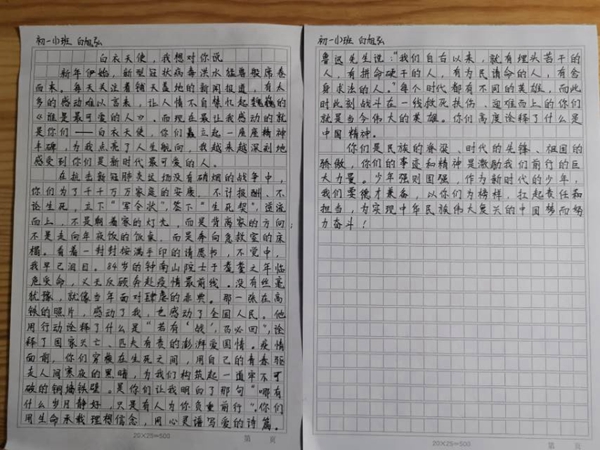 初一小班 白旭弘
白衣天使，我想对你说
新年伊始，新型冠状病毒洪水猛兽般席卷
而来。每天关注着铺天盖地的新闻报道，有太
多的感动难以言表，让人情不自禁忆起魏巍的
《谁是最可爱的人》。而现在最让我感动的就
是你们——白衣天使，你们矗立起一座座精神
丰碑，为我点亮了人生航向，我越来越深刻地
感受到你们是新时代最可爱的人。
在抗击新冠肺炎这场没有硝烟的战争中，
你们为了千千万万家庭的安康，不计报酬、不
论生死，立下“军令状”，签下“生死契”，逆流
而上，不是朝着家的灯光，而是背离家的方向
不是走向年夜饭的饭桌，而是奔向急救室的床
榻。看着一封封按满手印的请愿书，不觉中，
我早已泪目。84岁的钟南山院士于耄耋之年临
危受命，义无反顾奔赴疫情最前线。没有丝毫
犹豫，就像当年面对肆虐的非典。那一张在高
铁的照片，感动了我，也感动了全国人民。他
用行动诠释了什么是“若有‘战’，召必回”，诠
释了国家兴亡、匹夫有责的澎湃爱国情。疫情
面前，你们穿梭在生死之间，用自己的青春驱
走人间寒夜的黑暗，为我们构筑起一道牢不可
破的钢墙铁壁。是你们让我明白了那句“哪有
什么岁月静好，只是有人为你负重前行”。你们
用生命承载理想信念，用心灵谱写爱的诗篇。
20×25=500
第 页
初一小班 白旭弘
鲁迅先生说：“我们自古以来，就有埋头苦干的
人，有拼命硬干的人，有为民请命的人，有舍
身求法的人。”每个时代都有不同的英雄，而此
时此刻战斗在一线救死扶伤、迎难而上的你们
就是当今伟大的英雄。你们高度诠释了什么是
中国精神。
你们是民族的脊梁、时代的先锋、祖国的
骄傲，你们的事迹和精神是激励我们前行的巨
大力量。少年强则国强。作为新时代的少年，
我们要德才兼备，以你们为榜样，扛起责任和
担当，为实现中华民族伟大复兴的中国梦而努
力奋斗！
20×25=500
第 页